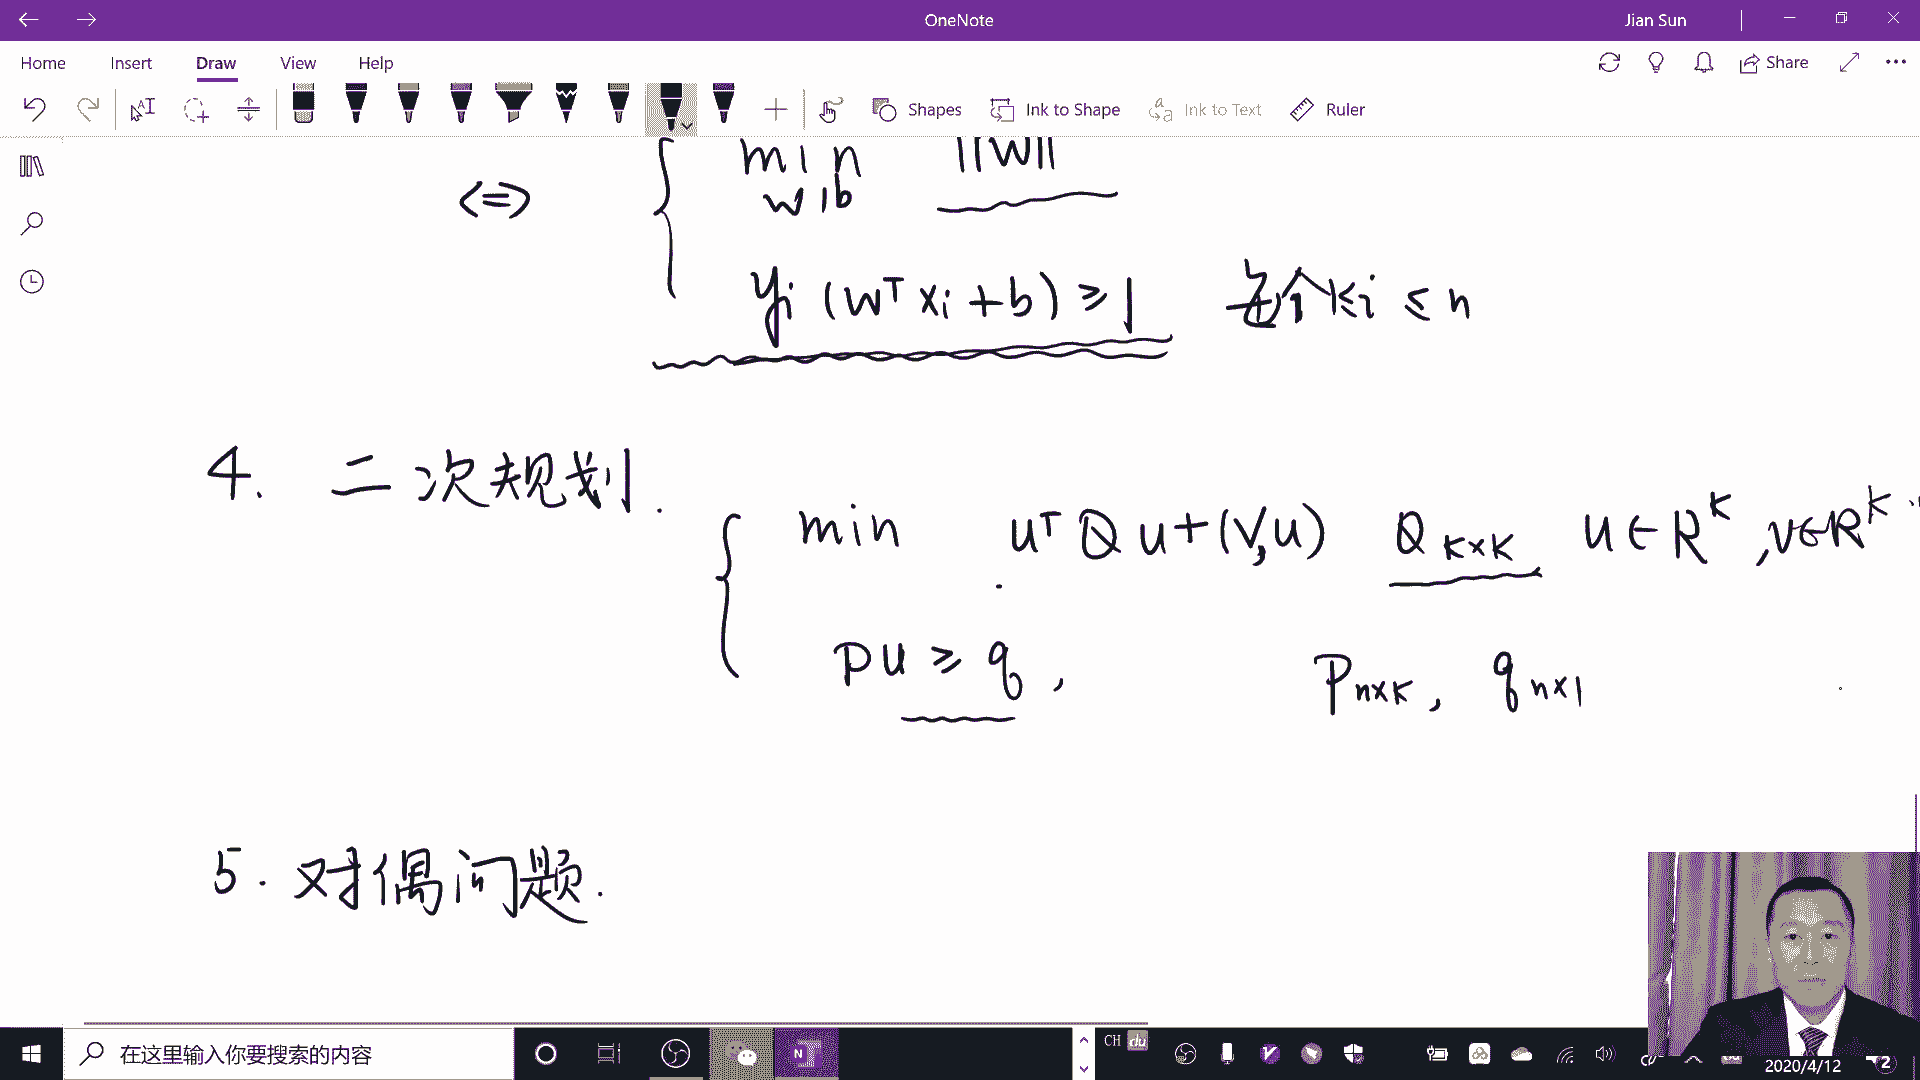 OneNote
Jian Sun
Home Insert Draw View Help
Share
Shapes Ink to Shape Ink to Text Ruler
min ||W||
w,b
<=>
yi (wᵀxi + b) ≥ 1 每个 1≤i ≤ n
4. 二次规划.
min uᵀQu+(v,u) Q K×K u∈R^K, v∈R^K.
Pu ≥ q, P n×K, q n×1
5. 对偶问题.
在这里输入你要搜索的内容
CH du
2020/4/12
2